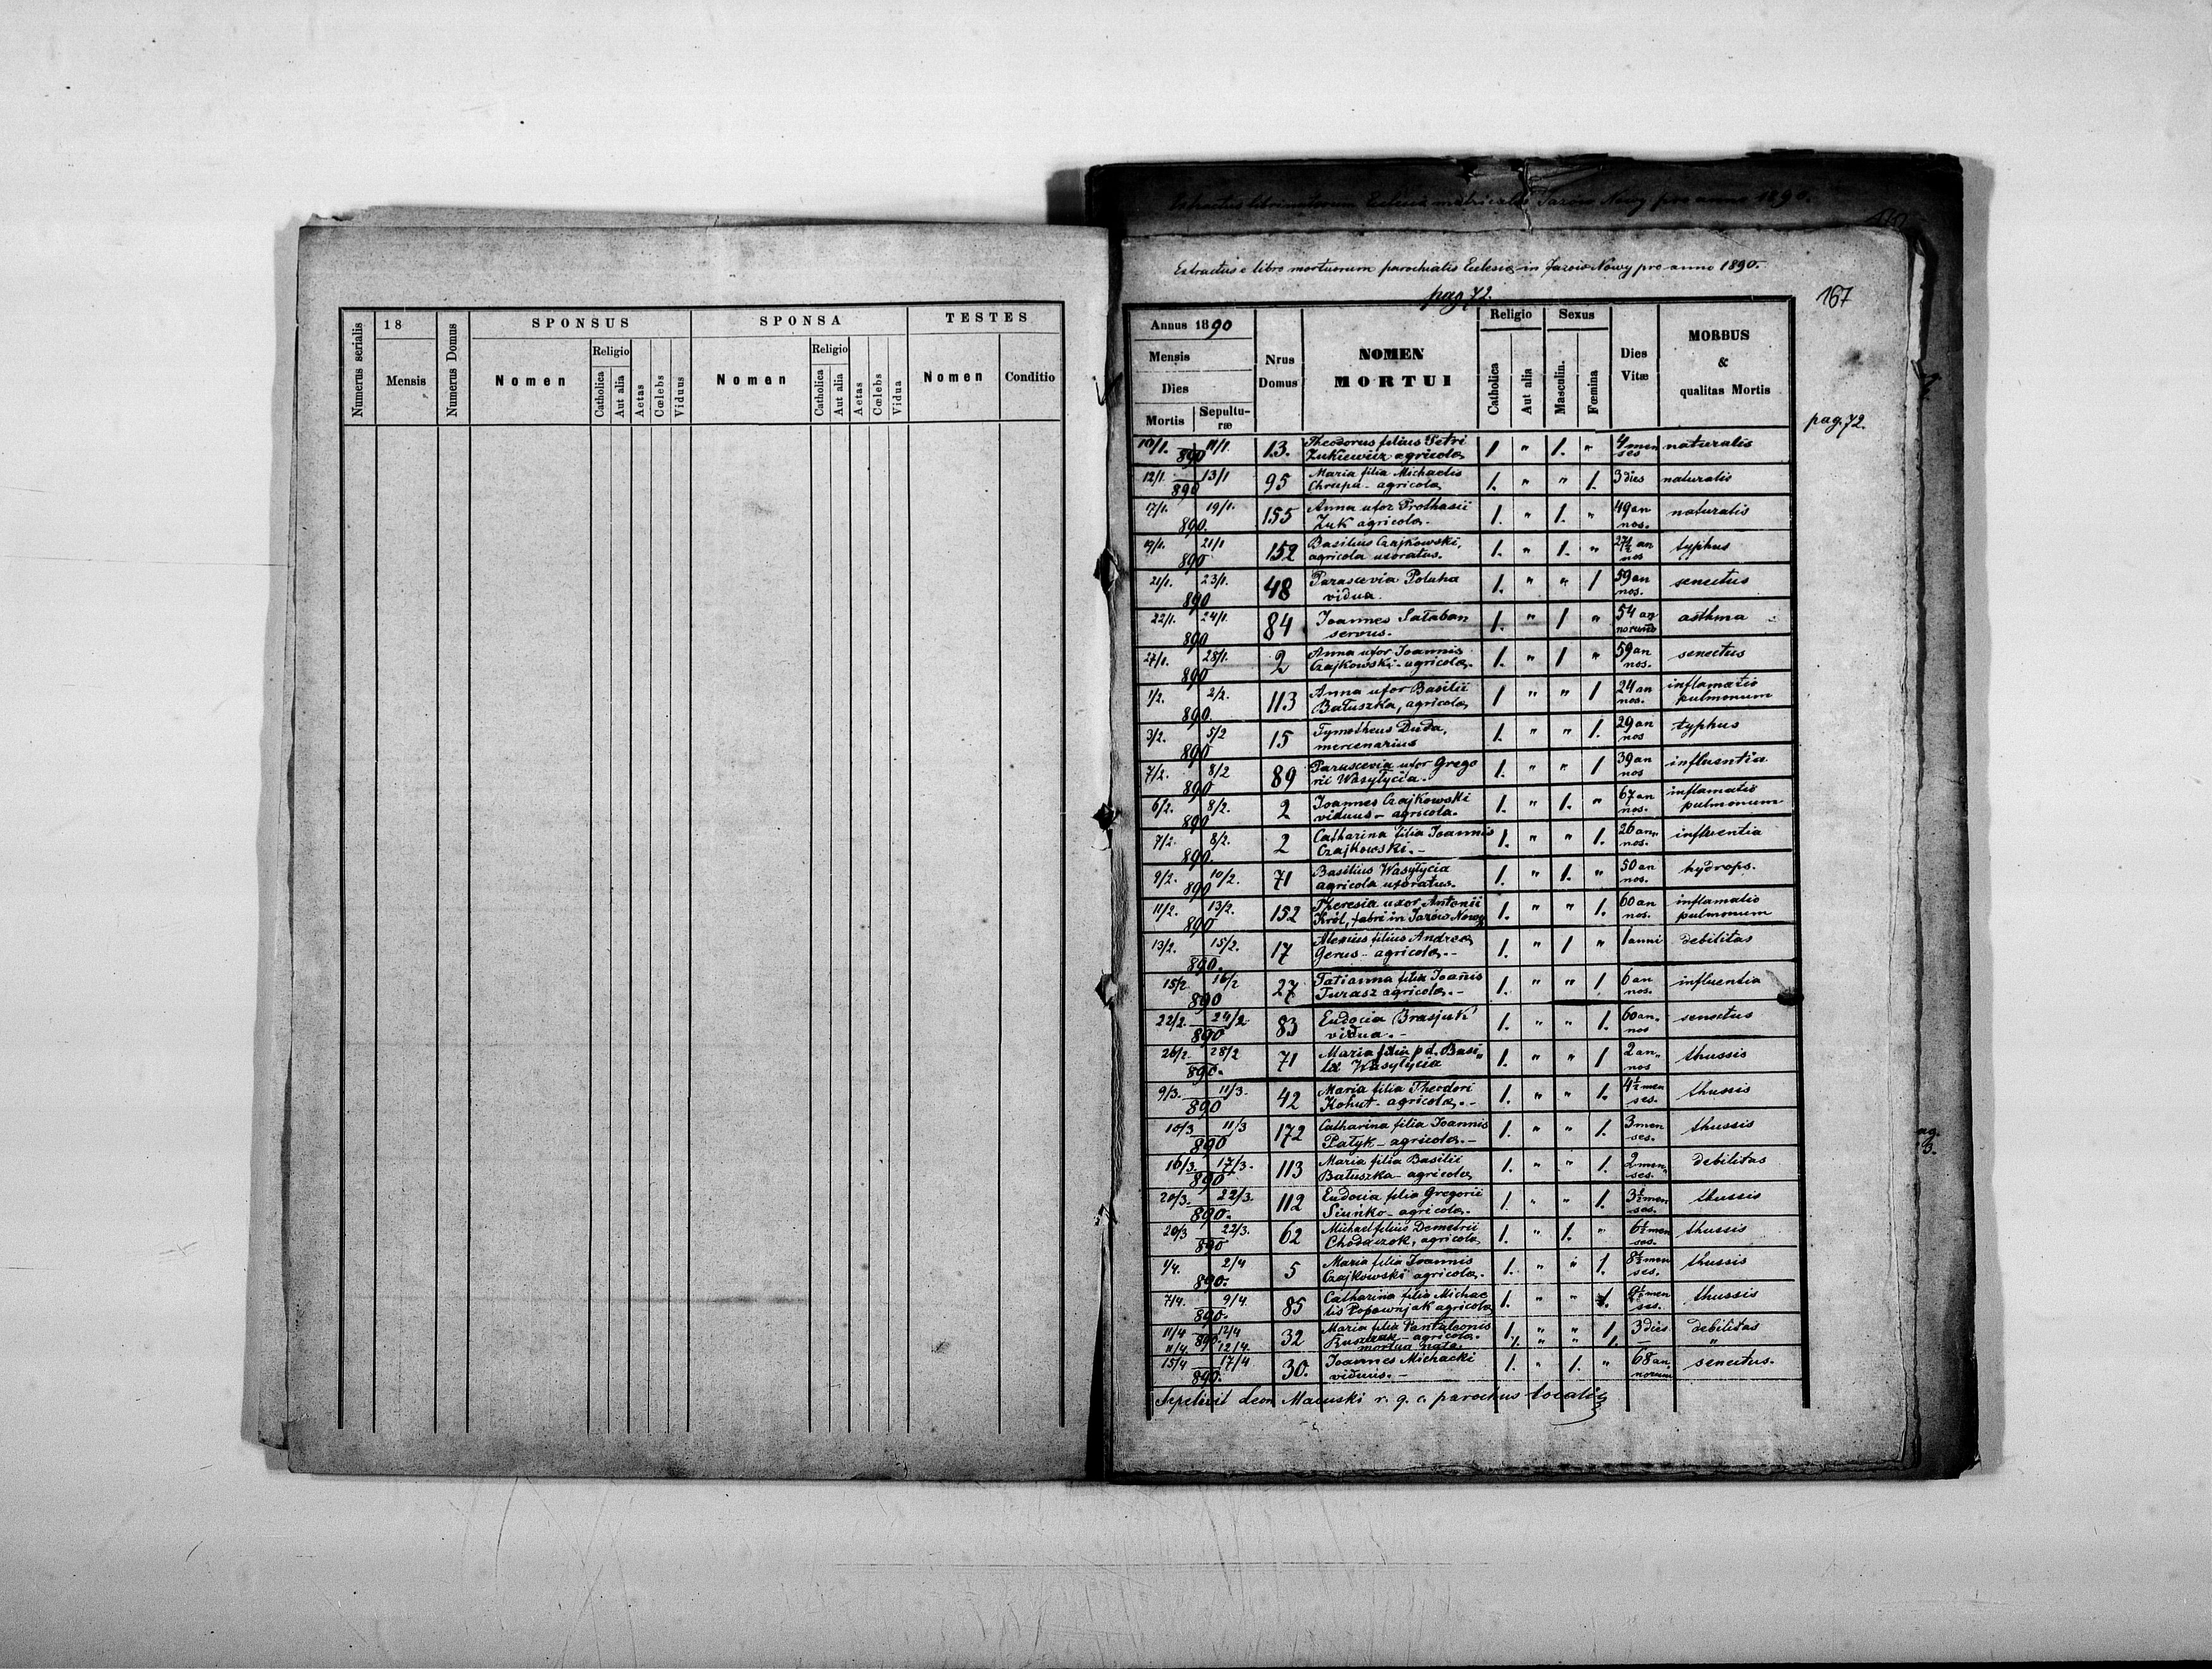 Numerus serialis
18
Mensis
Numerus Domus
SPONSUS
Nomen
Religio
Catholica
Aut alia
Aetas
Cœlebs
Viduus
SPONSA
Nomen
Religio
Catholica
Aut alia
Aetas
Cœlebs
Vidua
TESTES
Nomen
Conditio
pro anno 1890.
Extractus e libro mortuorum parochialis Eclesiæ in Jazów Nowy pro anno 1890.
pag 72.
167
pag. 72.
Annus 1890
Mensis
Dies
Mortis
Sepultu-
ræ
Nrus
Domus
NOMEN
MORTUI
Religio
Catholica
Aut alia
Sexus
Masculin.
Fœmina
Dies
Vitæ
MORBUS
&
qualitas Mortis
10/1. 11/1 890 13. Theodorus filius Petri 1 " 1. " 4 men naturalis
Zukiewicz agricolæ ses
12/1. 13/1 890 95 Maria filia Michaelis 1. " " 1. 3 dies naturalis
Chrupa - agricolæ
17/1. 19/1. 890. 155 Anna uxor Prothasii 1. " 1. " 49 an naturalis
Zuk agricolæ. nos.
19/1. 21/1 890 152 Basilius Czajkowski, 1. " 1. " 27½ an typhus
agricola uxoratus. nos
21/1. 23/1. 890 48 Parascevia Poluha 1. " " 1 59 an senectus
vidua. nos.
22/1. 24/1. 890 84 Joannes Sałaban 1. " 1 " 54 an asthma
servus. norum
27/1. 28/1. 890 2 Anna uxor Joannis 1. " 1 " 59 an senectus
Czajkowski - agricolæ. nos.
1/2. 2/2. 890. 113 Anna uxor Basilii 1 " " 1 24 an inflamatio
Bałuszka, agricolæ nos. pulmonum
3/2. 5/2 890 15 Tymotheus Duda, 1. " " 1. 29 an typhus
mercenarius nos
7/2. 8/2 890 89 Parascevia uxor Grego 1. " " 1 39 an influentia
rii Wasyłycia. nos
6/2. 8/2. 890 2 Joannes Czajkowski 1. " 1. " 67 an inflamatio
viduus - agricola. nos. pulmonum
7/2. 8/2. 890. 2 Catharina filia Joannis 1. " " 1. 26 an" influentia
Czajkowski. - nos.
9/2. 10/2. 890 71 Basilius Wasyłycia 1. " 1. " 50 an hydrops.
agricola uxoratus. nos.
11/2. 13/2. 890 152 Theresia uxor Antonii 1. " " 1. 60 an inflamatio
Król, fabri in Jazów Nowy nos. pulmonum
13/2. 15/2. 890. 17 Alexius filius Andreæ 1. " 1 " 1 anni debilitas
Gerus - agricolæ. -
15/2 16/2 890 27 Tatianna filia Joanis 1. " " 1 6 an influentia
Turasz agricolæ. - nos.
22/2. 24/2 890 83 Eudocia Brasjuk 1. " " 1. 60 an" senectus
vidua. - nos
26/2. 28/2 890. 71 Maria filia p d. Basi" 1. " " 1 2 an" thussis
lii Wasyłycia nos
9/3. 11/3. 890 42 Maria filia Theodori 1. " " 1. 4½ men thussis
Kohut - agricolæ. - ses.
10/3 11/3 890 172 Catharina filia Joannis 1. " " 1. 3 men thussis
Pałyk - agricolæ. - ses.
16/3. 17/3. 890 113 Maria filia Basilii 1. " " 1. 2 men" debilitas
Bałuszka - agricolæ ses.
20/3. 22/3. 890. 112 Eudocia filia Gregorii 1. " " 1. 3½ men thussis
Siuńko - agricolæ. ses.
20/3 22/3. 890 62 Michael filius Demetrii 1. " 1. " 6½ men thussis
Chodaczok, agricolæ ses.
1/4. 2/4 890. 5 Maria filia Joannis 1. " " 1. 8½ men thussis
Czajkowski agricolæ. ses.
7/4. 9/4. 890. 85 Catharina filia Michae 1. " " 1. men thussis
lis Popownjak agricolæ ses.
11/4 12/4 890. 32 Maria filia Pantaleonis 1. " " 1. 3 dies debilitas
agricolæ.
11/4. 12/4. mortua nata. 1. " " 1. — "
15/4 17/4 890. 30. Joannes Michacki 1. " 1. " 68 an" senectus.
viduus. - norum
Sepelivit Leon Macuski r. g. c. parochus localis